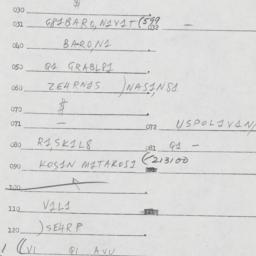 030
031 GRIBARO,NIVIT(599 032 —
040 BARO,NI
050 GI GRABLPI
060 ZEHRNIS )NASINSI
070 §
071 — 072 USPOLIVIN/
080 RISKIL8 081 GI —
090 KOSIN MITAROSI (213100
100
110 VILI
120 )SEHRP
((VI GI AVU